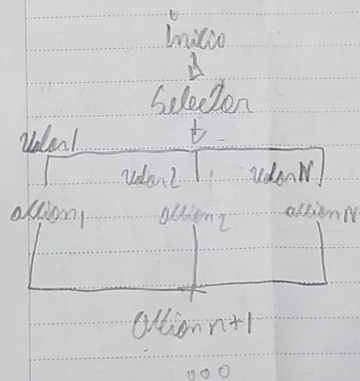 Inicio
Selector
Valor 1
Valor 2 Valor N
accion 1 accion 2 accion N
Accion n+1